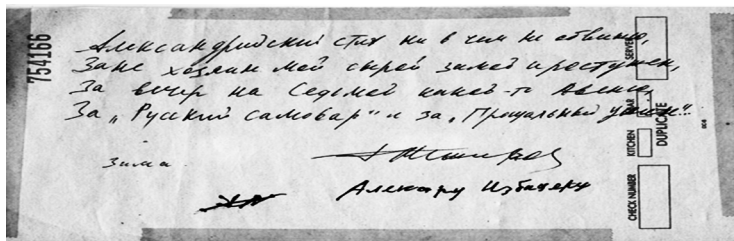 Александрийский стих ни в чем не обвиню,
Зане хозяин мой сырой зимой простужен,
За вечер на Седьмой какой-то Авеню,
За „Русский самовар“ и за „Прощальный ужин“.
зима
754166
SERVER
BAR
KITCHEN
DUPLICATE
CHECK NUMBER